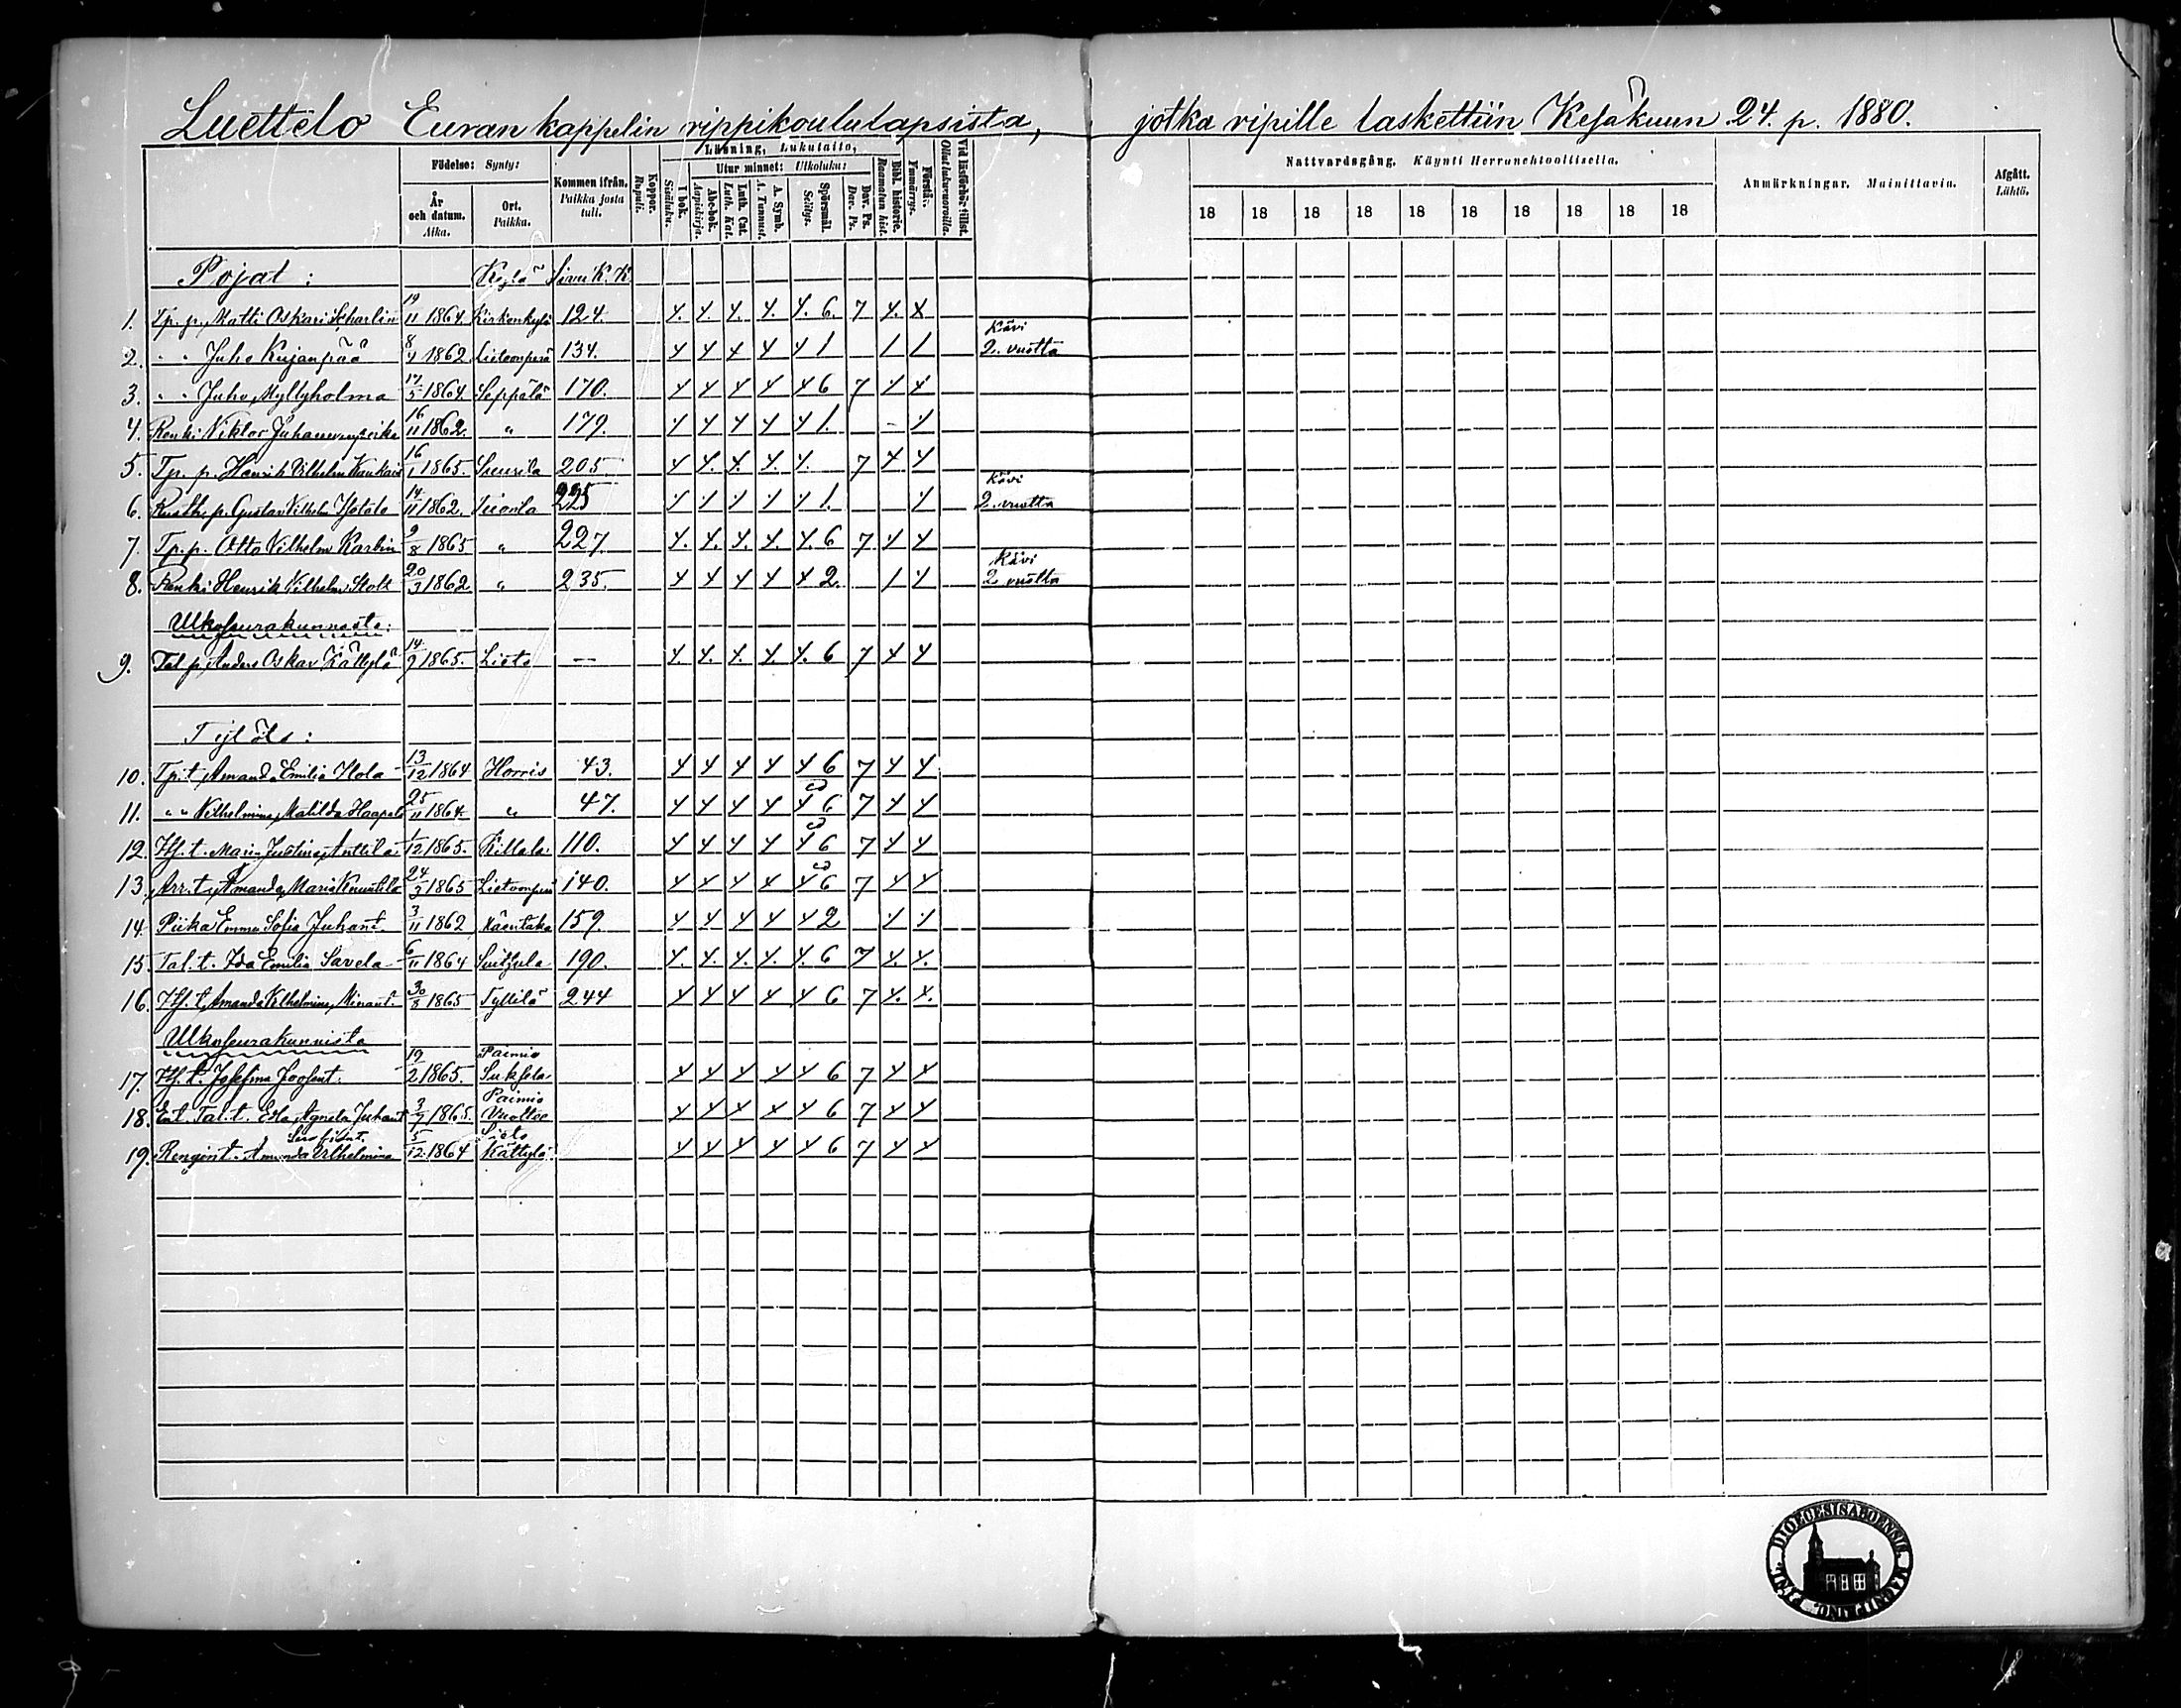 Luettelo Euran kappelin rippikoululapsista, jotka ripille laskettiin Kesäkuun 24. p. 1880.
Födelse: Syntyː
År och datum. Aika.
Ort. Paikka.
Kommen ifrån. Paikka josta tuli.
Koppor. Rupuli.
Läsning, Lukutaito,
I bok. Sisäluku.
Utur minnet: Ulkoluku:
Abc-bok. Aapiskirja.
Luth. Cat. Luth. Kat.
A. Symb. A. Tunnust.
Spörsmål. Selitys.
Dav. Ps. Dav. Ps.
Bibl. historie. Raamatun hist.
Förstå:. Ymmärrys.
Vid läsförhör tillst. Ollut lukuvuoroilla.
Nattvardsgång. Käynti Herranehtoollisella.
18 18 18 18 18 18 18 18 18 18
Anmärkningar. Mainittavia.
Afgått. Lähtö.
Pojat: Kylä Sivu K. K.
1. Tp. p. Matti Oskari Scharlin 19/11 1864. Kirkonkylä 124. 6. 7
2. " " Juho Kujanpää 8/4 1862 Lietoonperä 134. 1 Kävi 2. vuotta
3. " " Juho Myllyholma 17/5 1864. Seppälä 170. 6 7
4. Renki Viktor 16/11 1862. " 179. 1.
5. Tp. p. Henrik Vilhelm 16/1 1865. Suurila 205 7
6. p. Gustav Vilhelm 14/11 1862. 225 1. Kävi 2. vuotta
7. Tp. p. Otto Vilhelm Karlin 9/8 1865 " 227. 6 7
8. Renki Henrik Vilhelm Stolt 20/3 1862. " 235. 2. Kävi 2 vuotta
Ulkoseurakunnasta:
9. Tal p. Anders Oskar Kättylä 14/9 1865. Lieto — 6 7
Tytöt:
10. Tp. t. Amanda Emilia Ilola 13/12 1864 Horris 43. 6 7
11. " " Vilhelmina Matilda Haapala 25/11 1864. " 47. 6 7
12. t. Maria Justina Anttila 1/12 1865. Killala 110. 6 7
13. Arr. t. Amanda Maria Knuutila 24/3 1865 Lietoonperä 140. 6 7
14. Piika Emma Sofia Juhant. 3/11 1862 Käentaka 159. 2
15. Tal. t. Ida Emilia Savela 6/11 1864 190. 6 7
16. t. Amanda Vilhelmina 30/8 1865 Tyllilä 244 6 7
Ulkoseurakunnista
17. t. Josefina 19/2 1865. Paimio Suksela 6 7
18. Ent. Tal. t. Eda Agneta Juhant 3/7 1865. Paimio 6 7
19. Rengint. Amanda Vilhelmina 5/12 1864 Lieto Kättylä 6 7
DIOECESIS ABOENSIS.